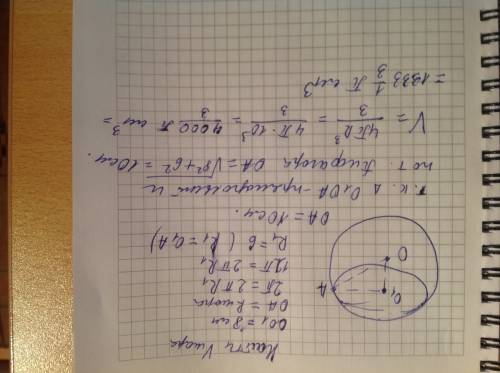 Найти Vшара
OO₁ = 8 см
OA = Rшара
2π = 2πR₁
12π = 2πR₁
R₁ = 6 (R₁ = O₁A)
OA = 10 см.
т.к. Δ O₁OA - прямоугольный и
по т. Пифагора OA = √8²+6² = 10 см.
V = 4πR³/3 = 4π·10³/3 = 4000/3 π см³ =
= 1333 1/3 π см³
A
O
O₁